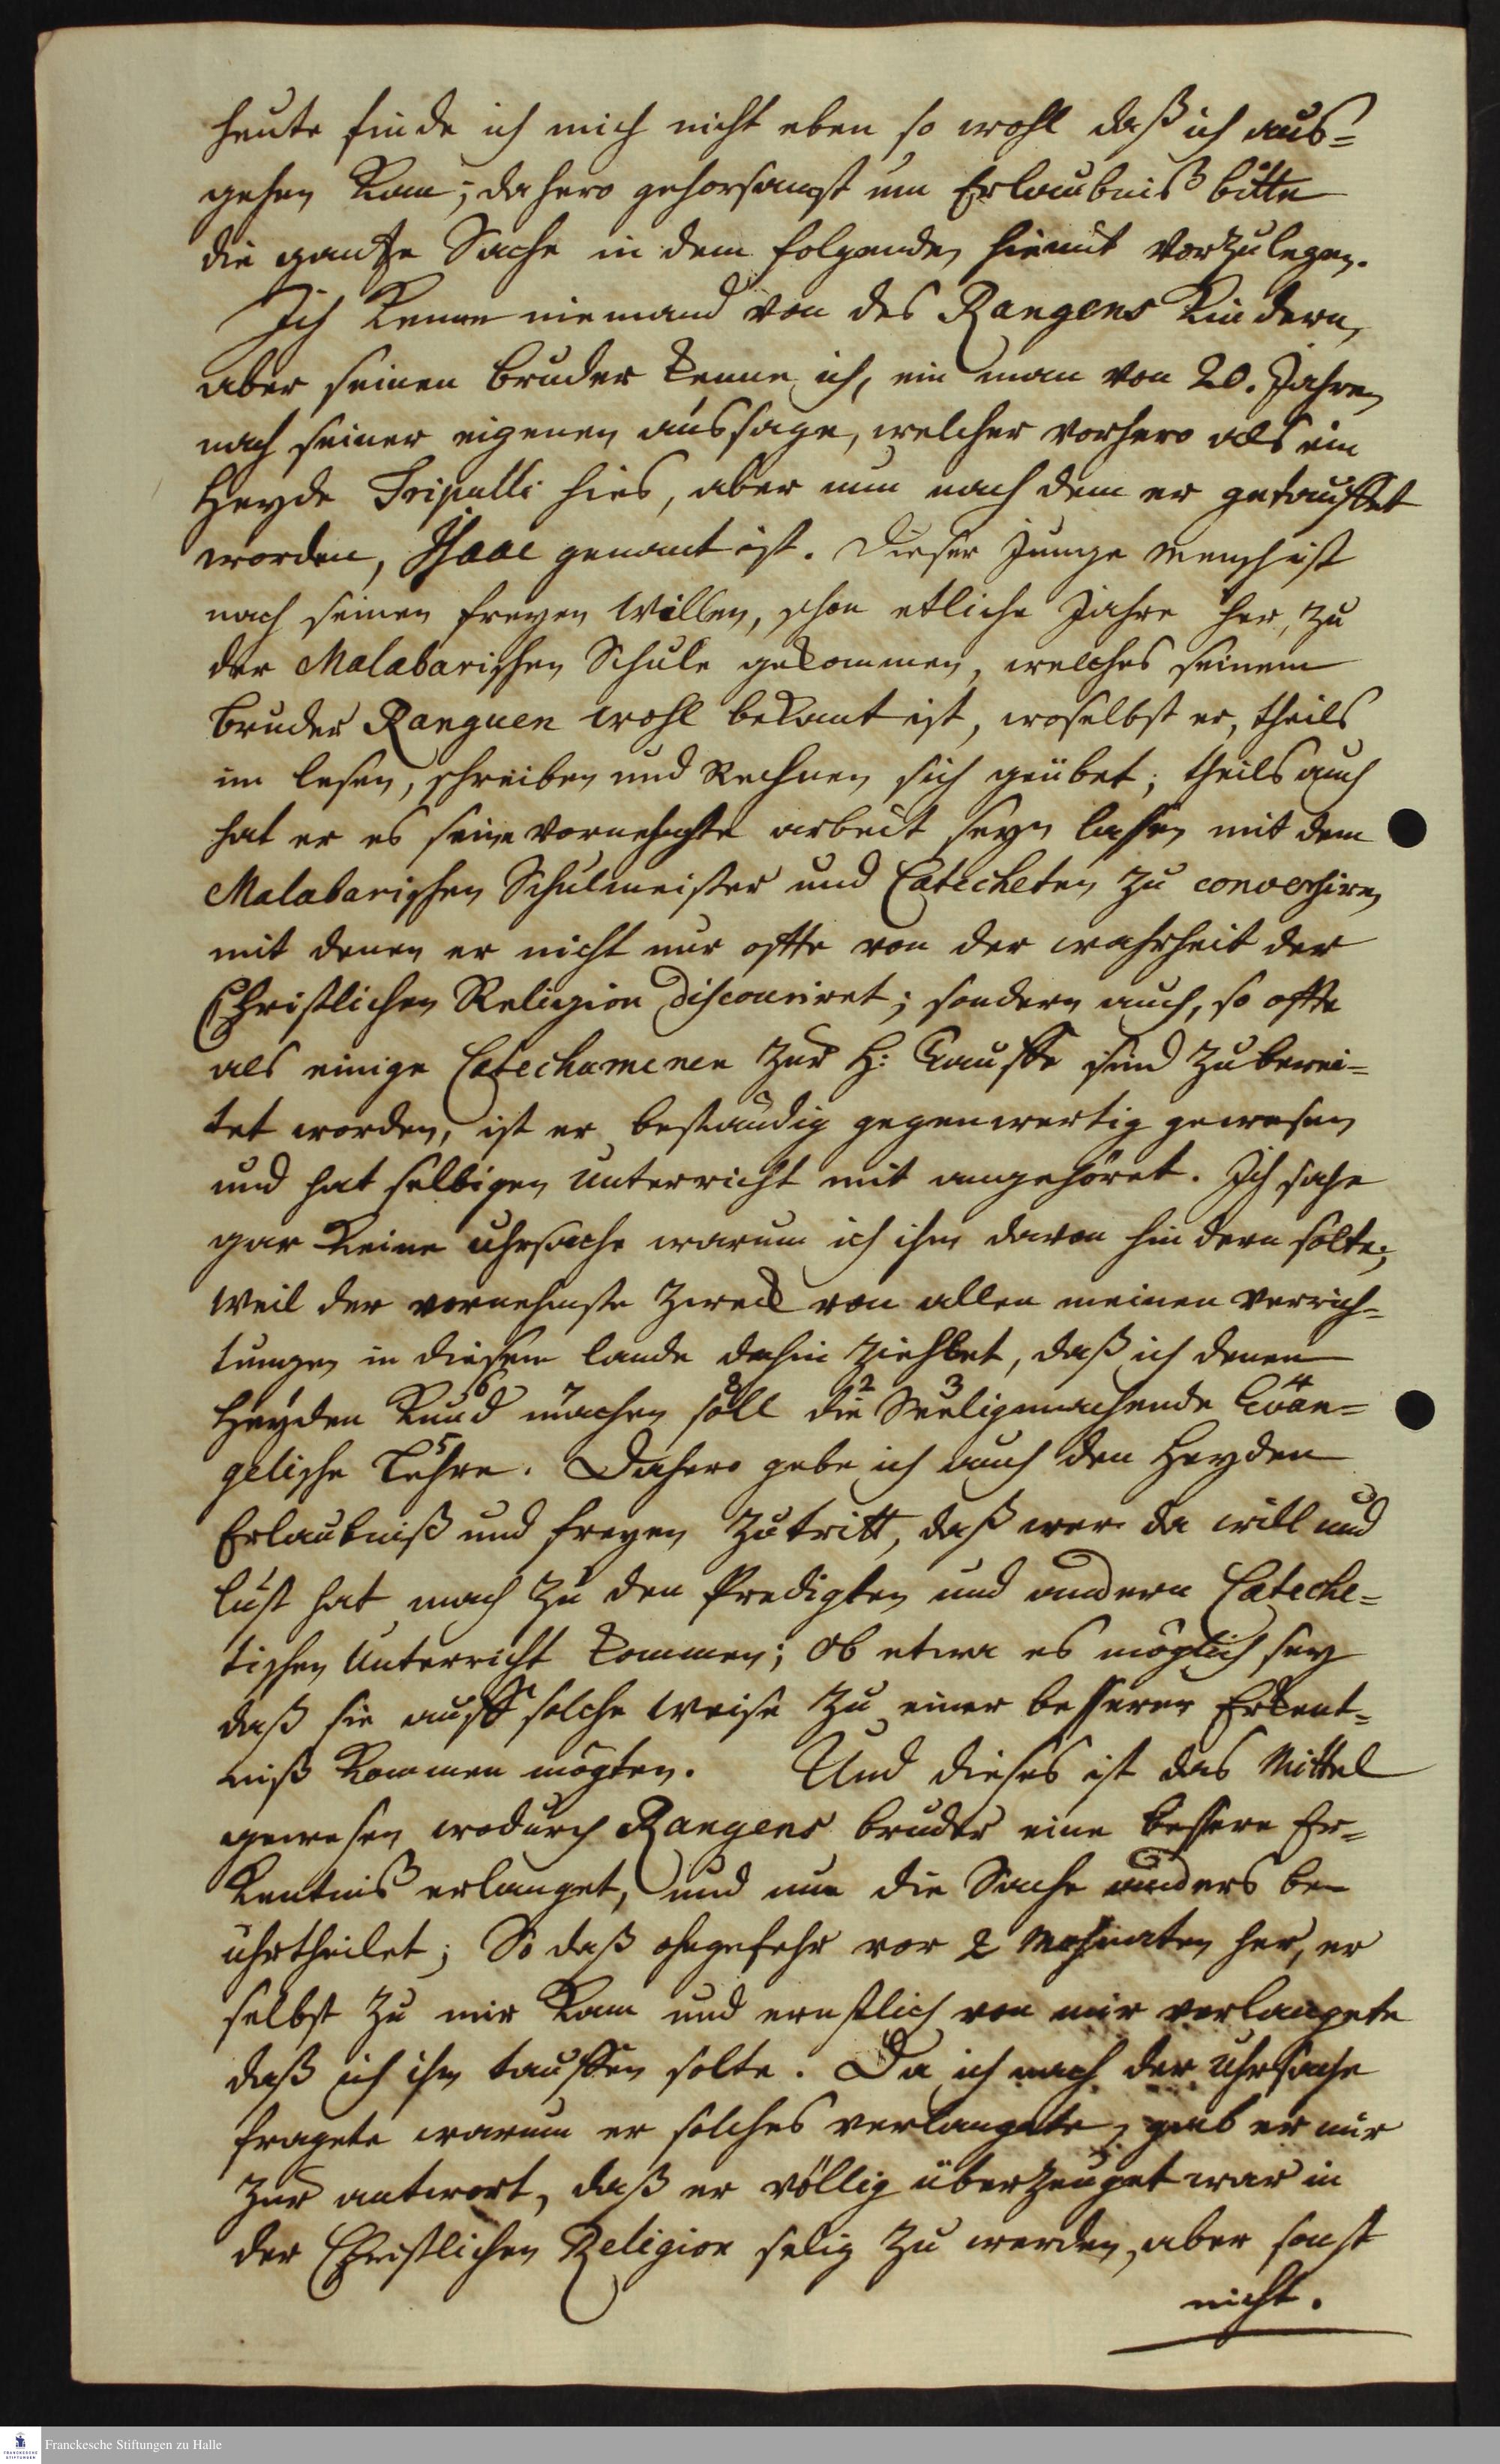 heute finde ich mich nicht eben so wohl daß ich aus=
gehen kan; dahero gehorsamst um Erlaubniß bitte
die gantze Sache in dem folgenden hiemit vorzulegen.
Ich kenne niemand von des Rangens Kindern,
aber seinen bruder kenne ich, ein man von 20. Jahren
nach seiner eigenen aussage, welcher vorhero als ein
Heyde Tripulli hies, aber nun nach dem er getauffet
worden, Isaac genant ist. Dieser Junge mensch ist
nach seinen freyen Willen, schon etliche Jahre her, zu
der Malabarischen Schule gekommen, welches seinem
bruder Ranguen wohl bekant ist, woselbst er, theils
im lesen, schreiben und Rechnen sich geübet; theils auch
hat er es seine vornehmste arbeit seyn lassen mit dem
Malabarischen Schulmeister und Catecheten zu conversiren
mit denen er nicht nur offte von der wahrheit der
Christlichen Religion discouriret; sondern auch, so offte
als einige Catechumenen zur H: Tauffe sind zuberei=
tet worden, ist er beständig gegenwertig gewesen
und hat selbigen unterricht mit angehöret. Ich sahe
gar keine uhrsache warum ich ihn davon hindern solte;
weil der vornehmste zweck von allen meinen verrich=
tungen in diesem lande dahin ziehlet, daß ich denen
Heyden kund 6 machen 7 soll 8 die 2 Seeligmachende 3 Evan= 4
gelische Lehre 5. Dahero gebe ich auch den Heyden
Erlaubniß und freyen Zutritt, daß wer da will und
lust hat mach zu den Predigten und andern Cateche=
tischen Unterricht kommen; ob etwa es möglich sey
daß sie auff solche weise zu einer besserer Erkent=
niß kommen mögten. Und dieses ist das Mittel
gewesen wodurch Rangens bruder eine bessere Er=
kentnis erlanget, und nun die Sache anders be=
uhrtheilet; So daß ohngefehr vor 2 Mohnaten her, er
selbst zu mir kam und ernstlich von mir verlangete
daß ich ihn tauffen solte. Da ich nach der uhrsache
fragete warum er solches verlangete, gab er mir
zur antwort, daß er völlig überzeuget war in
der Christlichen Religion selig zu werden, aber sonst
nicht.
Franckesche Stiftungen zu Halle